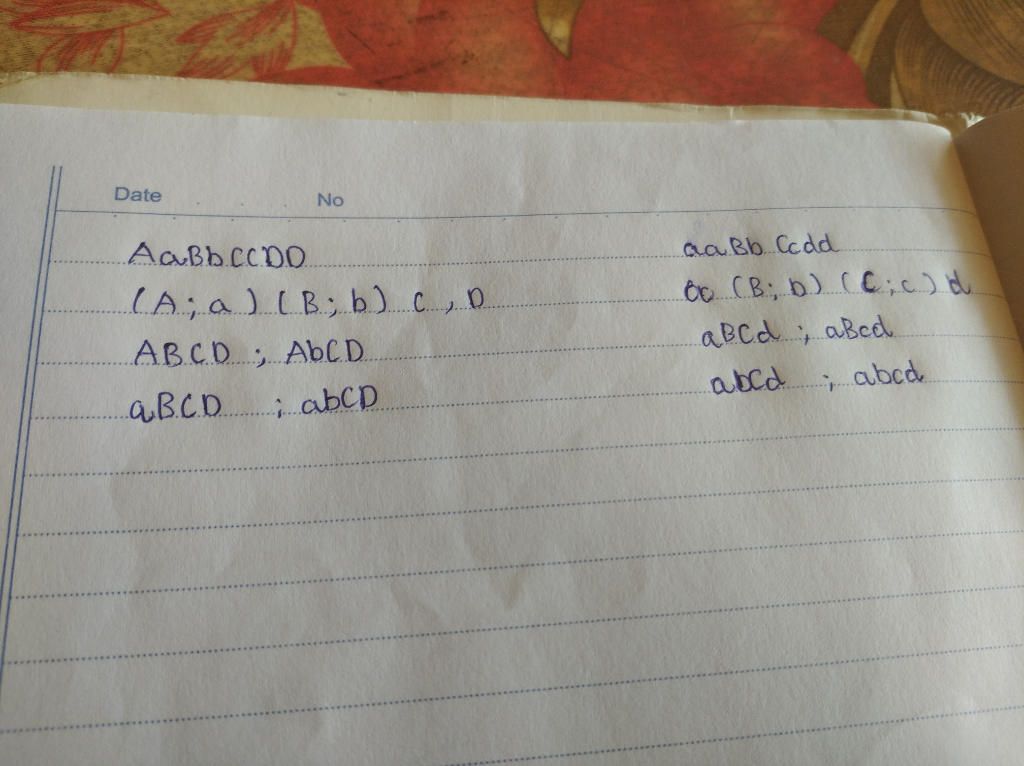 Date No
AaBbCCDD aaBb Ccdd
(A; a) (B; b) C, D (B; b) (C; c) d
ABCD ; AbCD aBCd ; aBcd
aBCD ; abCD abCd ; abcd